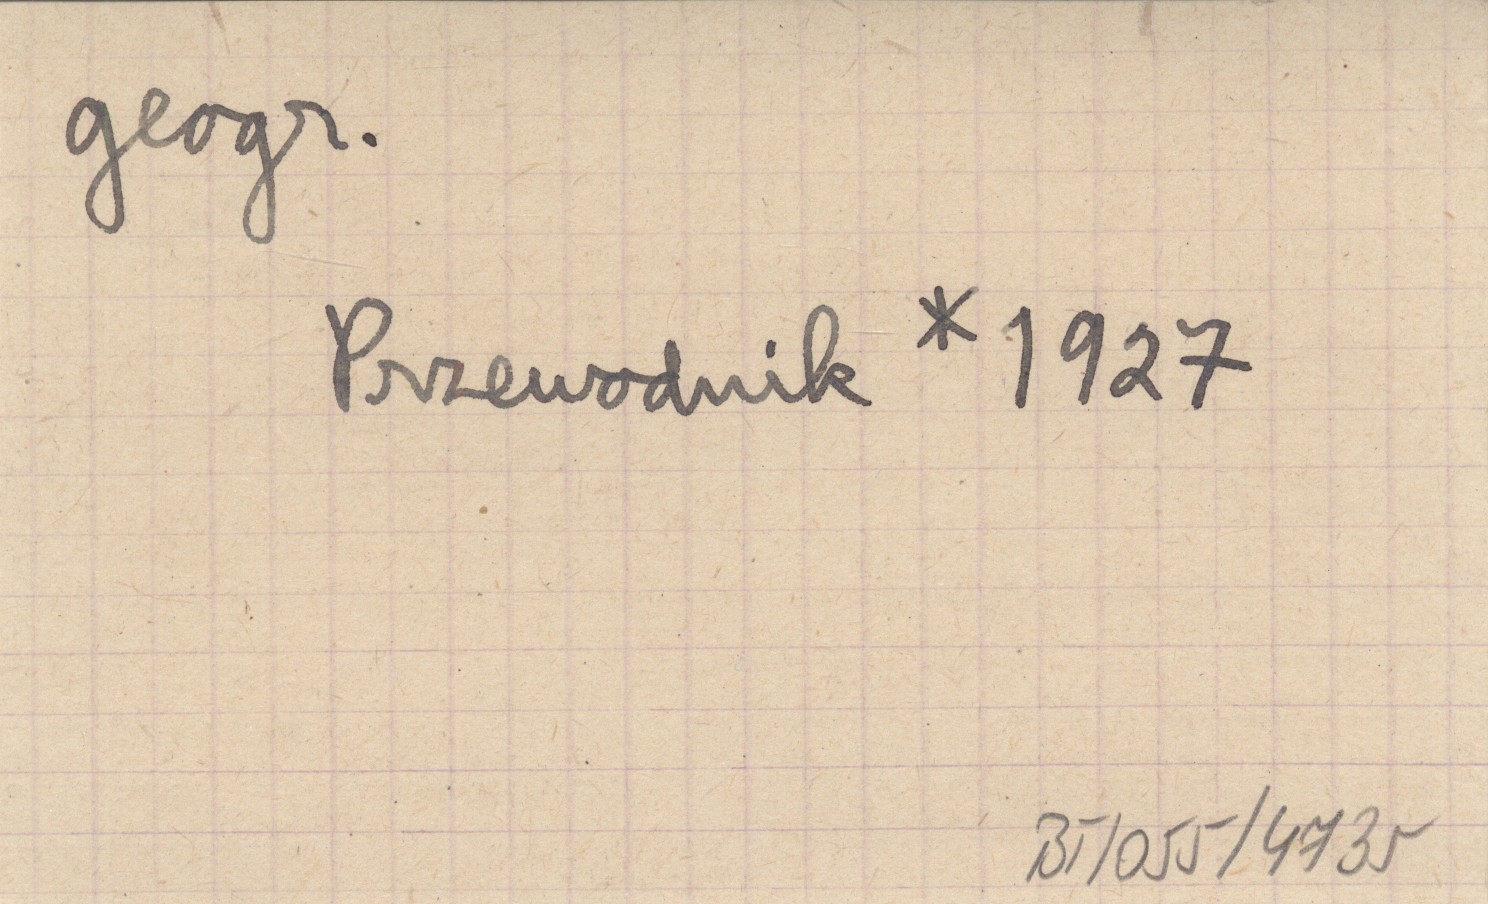 geogr.
Przewodnik * 1927
BT/055/4735